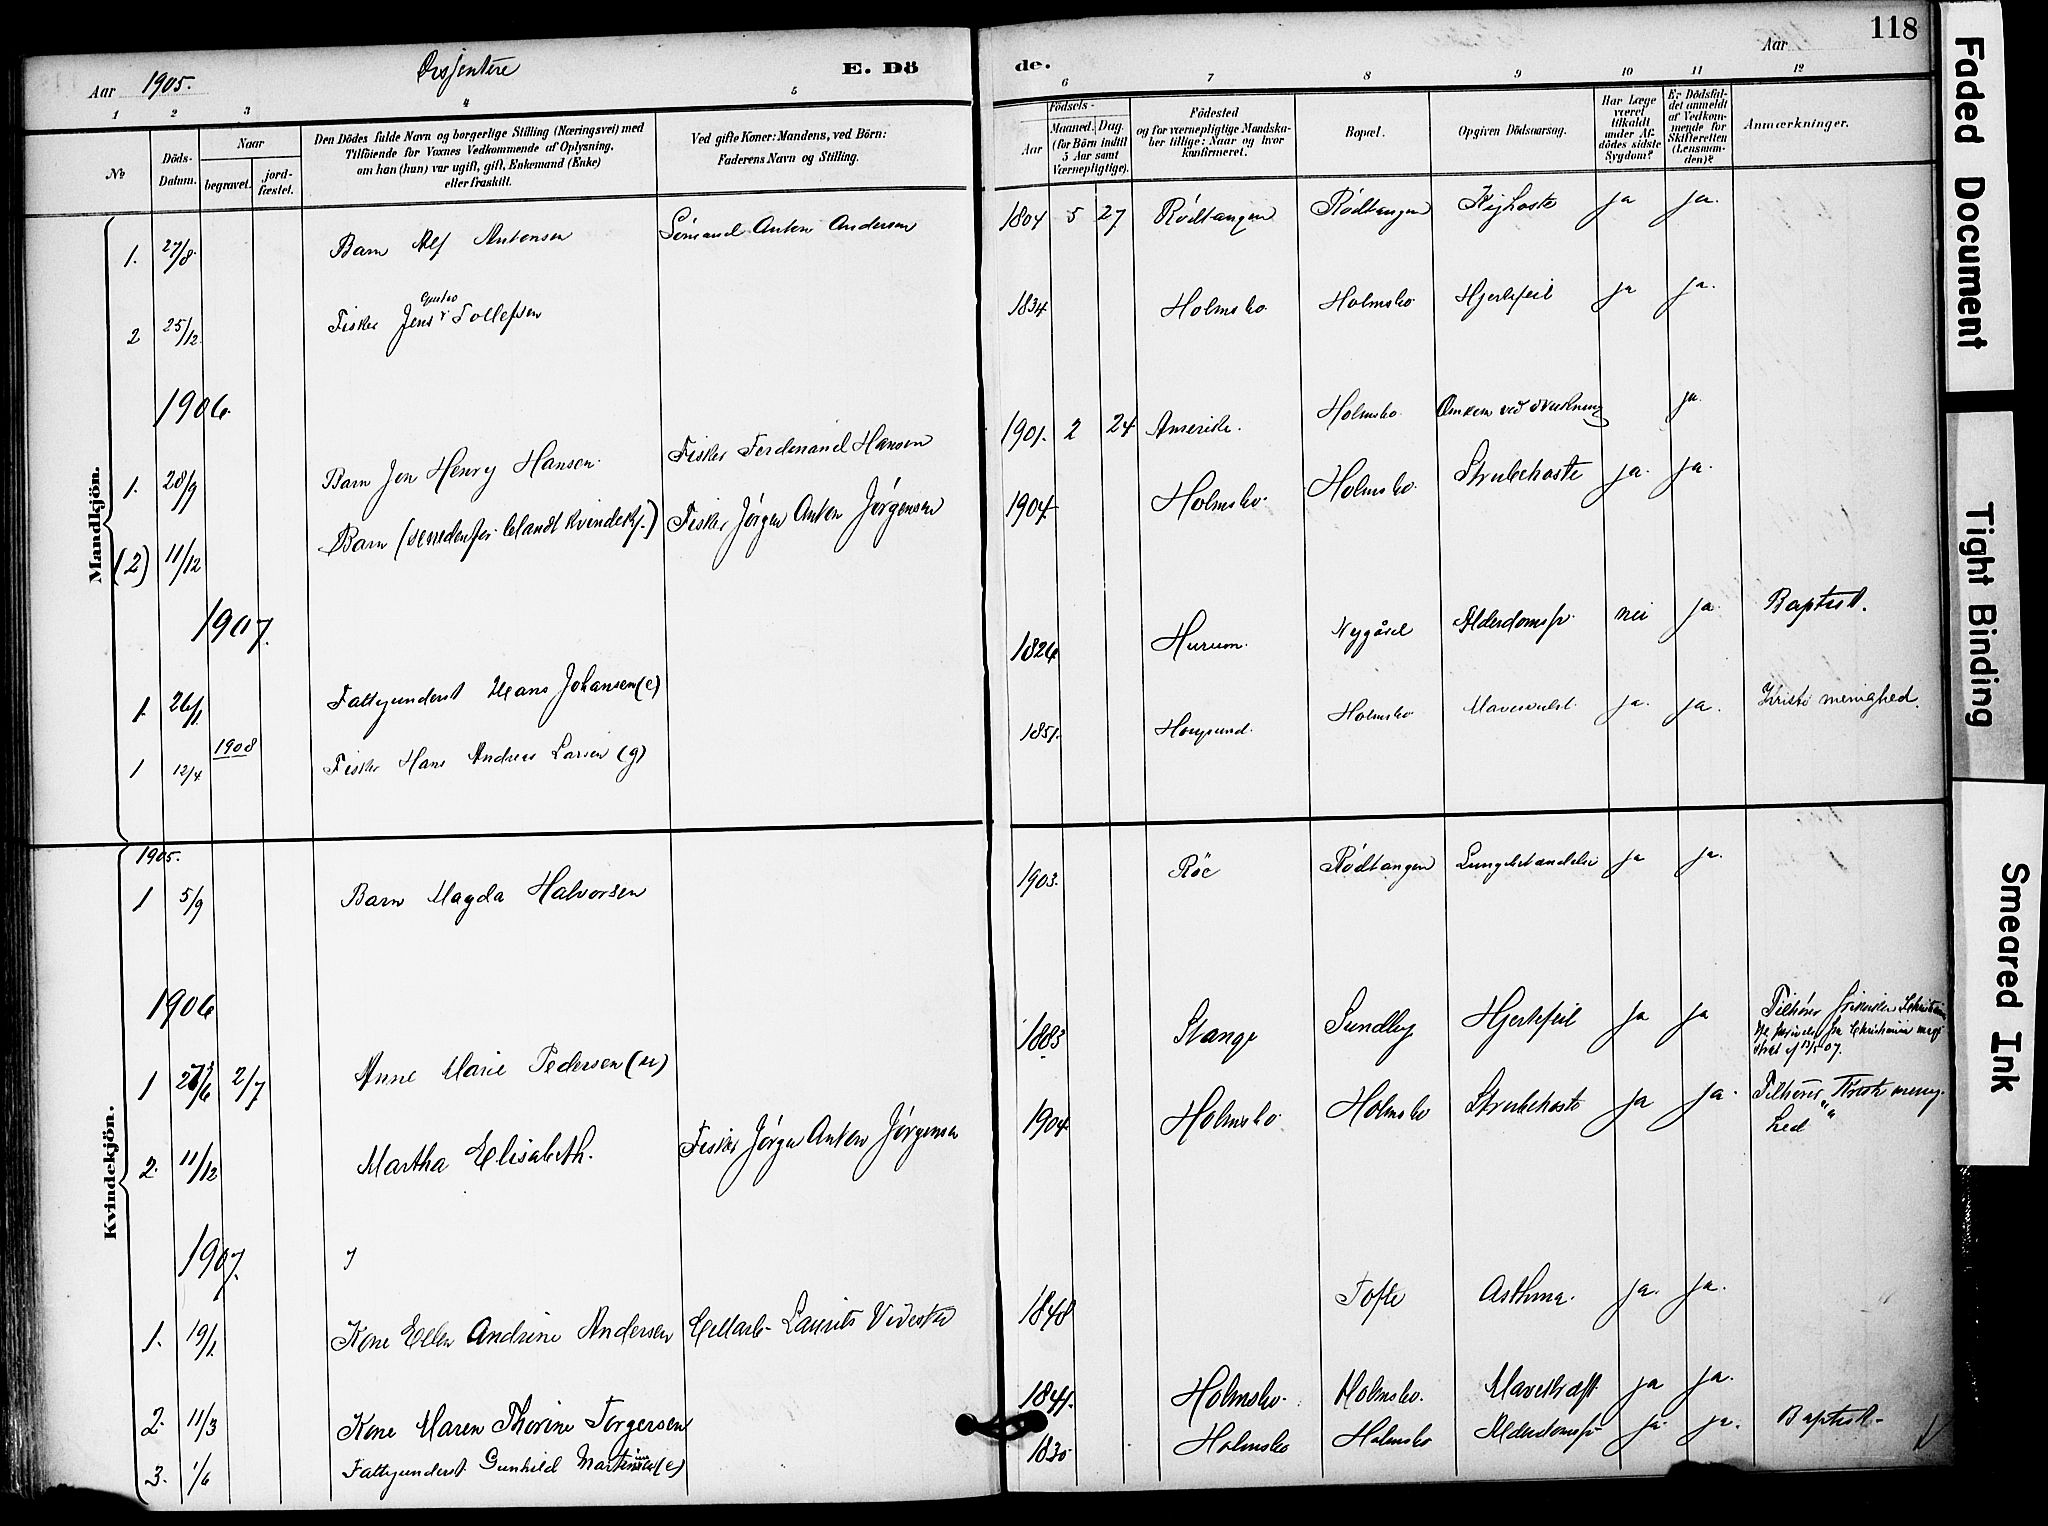 118
Aar 1905. Dissentere E. Dö de. Aar
1 2 3 4 5 6 7 8 9 10 11 12
№
Döds-Datum.
Naar
begravet.
jordfæstet.
Den Dödes fulde Navn og borgerlige Stilling (Næringsvei) med
Tilföiende for Voxnes Vedkommende af Oplysning,
om han (hun) var ugift, gift, Enkemand (Enke)
eller fraskilt.
Ved gifte Koner: Mandens, ved Börn:
Faderens Navn og Stilling.
Födsels-
Aar
Maaned. Dag.
(for Börn indtil
5 Aar samt
Værnepligtige).
Födested
og for værnepligtige Mandska-
ber tillige: Naar og hvor
konfirmeret.
Bopæl.
Opgiven Dödsaarsag.
Har Læge
været
tilkaldt
under Af-
dödes sidste
Sygdom?
Er Dödsfal-
det anmeldt
af Vedkom-
mende for
Skifteretten
(Lensman-
den)?
Anmærkninger.
Mandkjön.
1. 27/8. Barn Alf Antonsen Sömand Anton Andersen 1804 5 27 Rödtangen Rödtangen Kighoste ja ja.
2 25/12. Fisker Jens Gustav Tollefsen 1834 Holmsbo. Holmsbo Hjertefeil ja ja.
1906.
1. 28/9 Barn Jon Henry Hansen. Fisker Ferdinand Hansen 1901. 2 24 Amerika. Holmsbo. Omkom ved drukning ja.
(2) 11/12 Barn (se nedenfor blandt kvindekj.) Fisker Jørgen Anton Jørgensen 1904. Holmsbo. Holmsbo. Strubehoste ja. ja.
1907.
1. 26/1. Fattigunderst. Hans Johansen (e) 1826 Hurum. Nygård Alderdomssv. nei ja Baptist.
1908
1 12/4 Fisker Hans Andreas Larsen (g) 1851. Haugsund. Holmsbo Mavesvulst. ja. ja. Kristi menighed.
Kvindekjön.
1905.
1 5/9 Barn Magda Halvorsen 1903. Röd Rödtangen Lungebetændelse ja ja.
1906
1 27/6 2/7 Anne Marie Pedersen (u) 1883 Stange Sundby Hjertefeil ja ja Tilhörer frikirken
2. 11/12 Martha Elisabeth. Fisker Jørgen Anton Jørgensen 1904. Holmsbo Holmsbo Strubehoste ja ja. Tilhörer Kristi menig-
hed
1907.
1. 19/1. Kone Ellen Andrine Andersen Laurits 1848 Tofte Asthma. ja. ja.
2. 11/3 Kone Maren Thorine Torgersen 1841. Holmsbo. Holmsbo. Mavekræft ja ja.
3. 1/6 Fattigunderst. Gunhild (e) 1830 Holmsbo Holmsbo Alderdomssv. ja. ja. Baptist.
Faded Document
Tight Binding
Smeared Ink